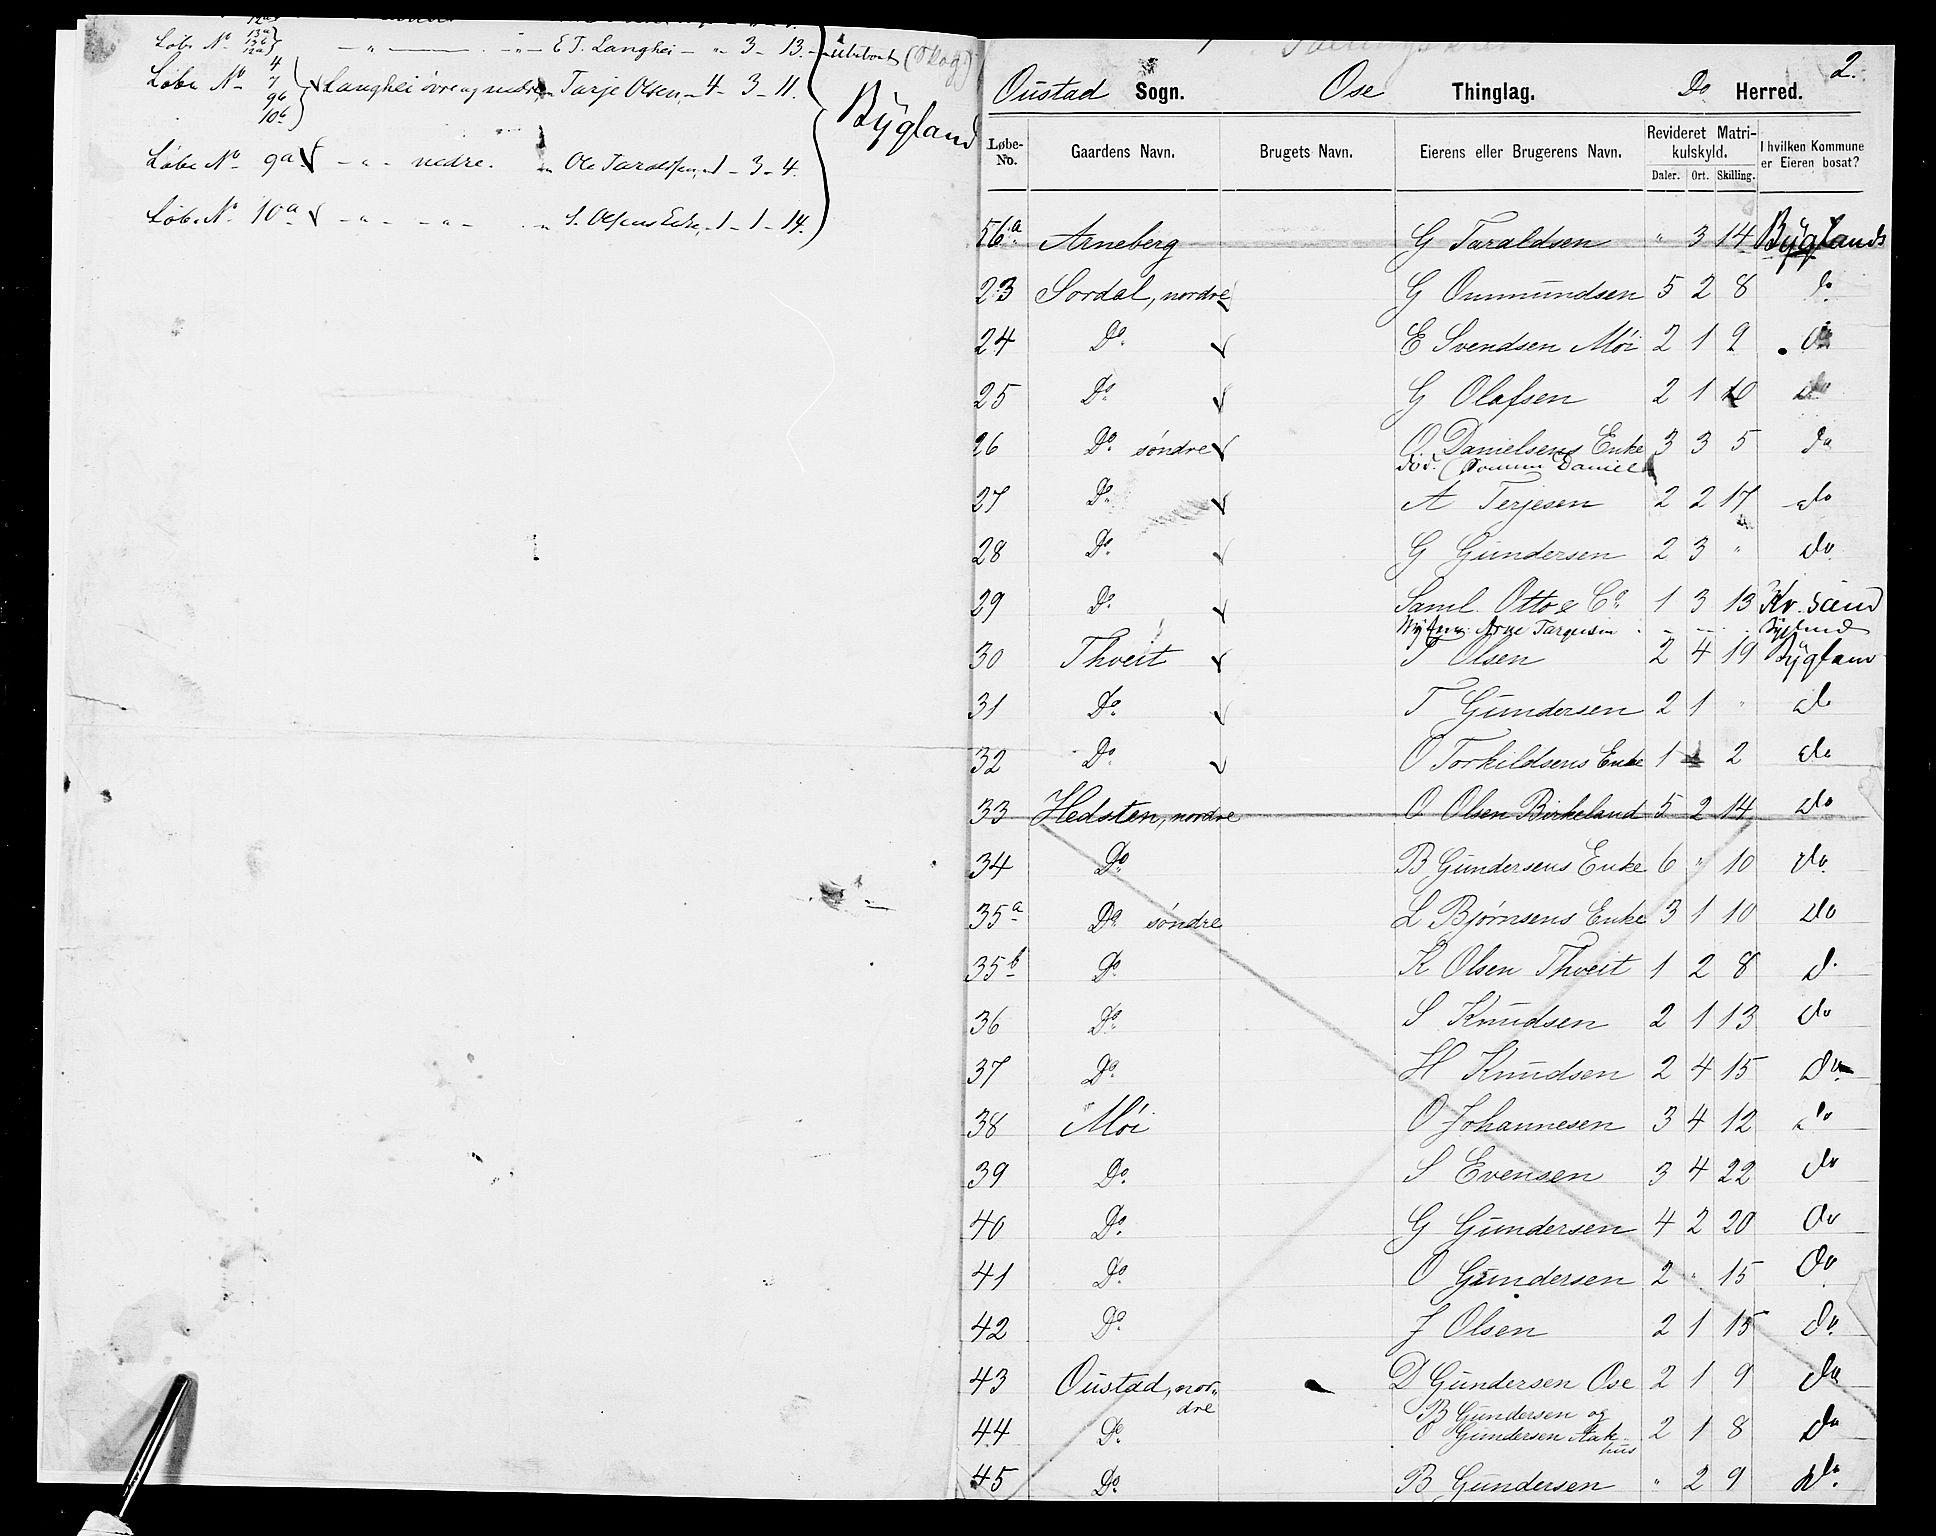 Løbe No 13a 13b 12a — „ — „ — E T. Langhei — „ 3 – 13. ubeboet (Skog)
Løbe No 4 7 9b 10b Langhei øvre og nedre, „ Tarje Olsen, – 4 – 3 – 11.
Bÿgland
Løbe No 9a – „ – nedre. „ Ole Taraldsen, 1 – 3 – 4.
Løbe No 10a – „ – „ – „ S. Olsens Enke, – 1 – 1 – 14.
2.
Oustad Sogn. Ose Thinglag. Do Herred.
Løbe-No. Gaardens Navn. Brugets Navn. Eierens eller Brugerens Navn. Revideret Matrikulskyld. I hvilken Kommune er Eieren bosat?
Daler. Ort. Skilling.
56a Arneberg G Taraldsen „ 3 14 Bÿglands
23 Sordal, nordre G Ommundsen 5 2 8 do
24 Do E Svendsen Möi 2 1 9 do
25 Do G Olafsen 2 1 10 do
26 Do søndre O Danielsens Enke 3 3 5 do
død. Daniel
27 Do A Terjesen 2 2 17 do
28 Do G Gundersen 2 3 „ do
29 Do Saml. Otto & Co 1 3 13 Kr.sand
Arne Targusen Bygland
30 Thveit T Olsen 2 4 19 Bÿgland
31 Do T Gundersen 2 1 „ do
32 Do O Torkildsens Enke 1 2 do
33 Hedsten, nordre O Olsen Birkeland 5 2 14 do
34 Do B Gundersens Enke 6 „ 10 do
35a Do søndre L Bjørnsens Enke 3 1 10 do
35b Do K Olsen Thveit 1 2 8 do
36 Do S Knudsen 2 1 13 do
37 Do H Knudsen 2 4 15 do
38 Möi O Johannesen 3 4 12 do
39 Do S Evensen 3 4 22 do
40 Do G Gundersen 4 2 20 do
41 Do O Gundersen 2 „ 15 do
42 Do J Olsen 2 1 15 do
43 Oustad, nordre D Gundersen Ose 2 1 9 do
44 Do B Gundersen og O Gundersen Aakhus 2 1 8 do
45 Do B Gundersen „ 2 9 do